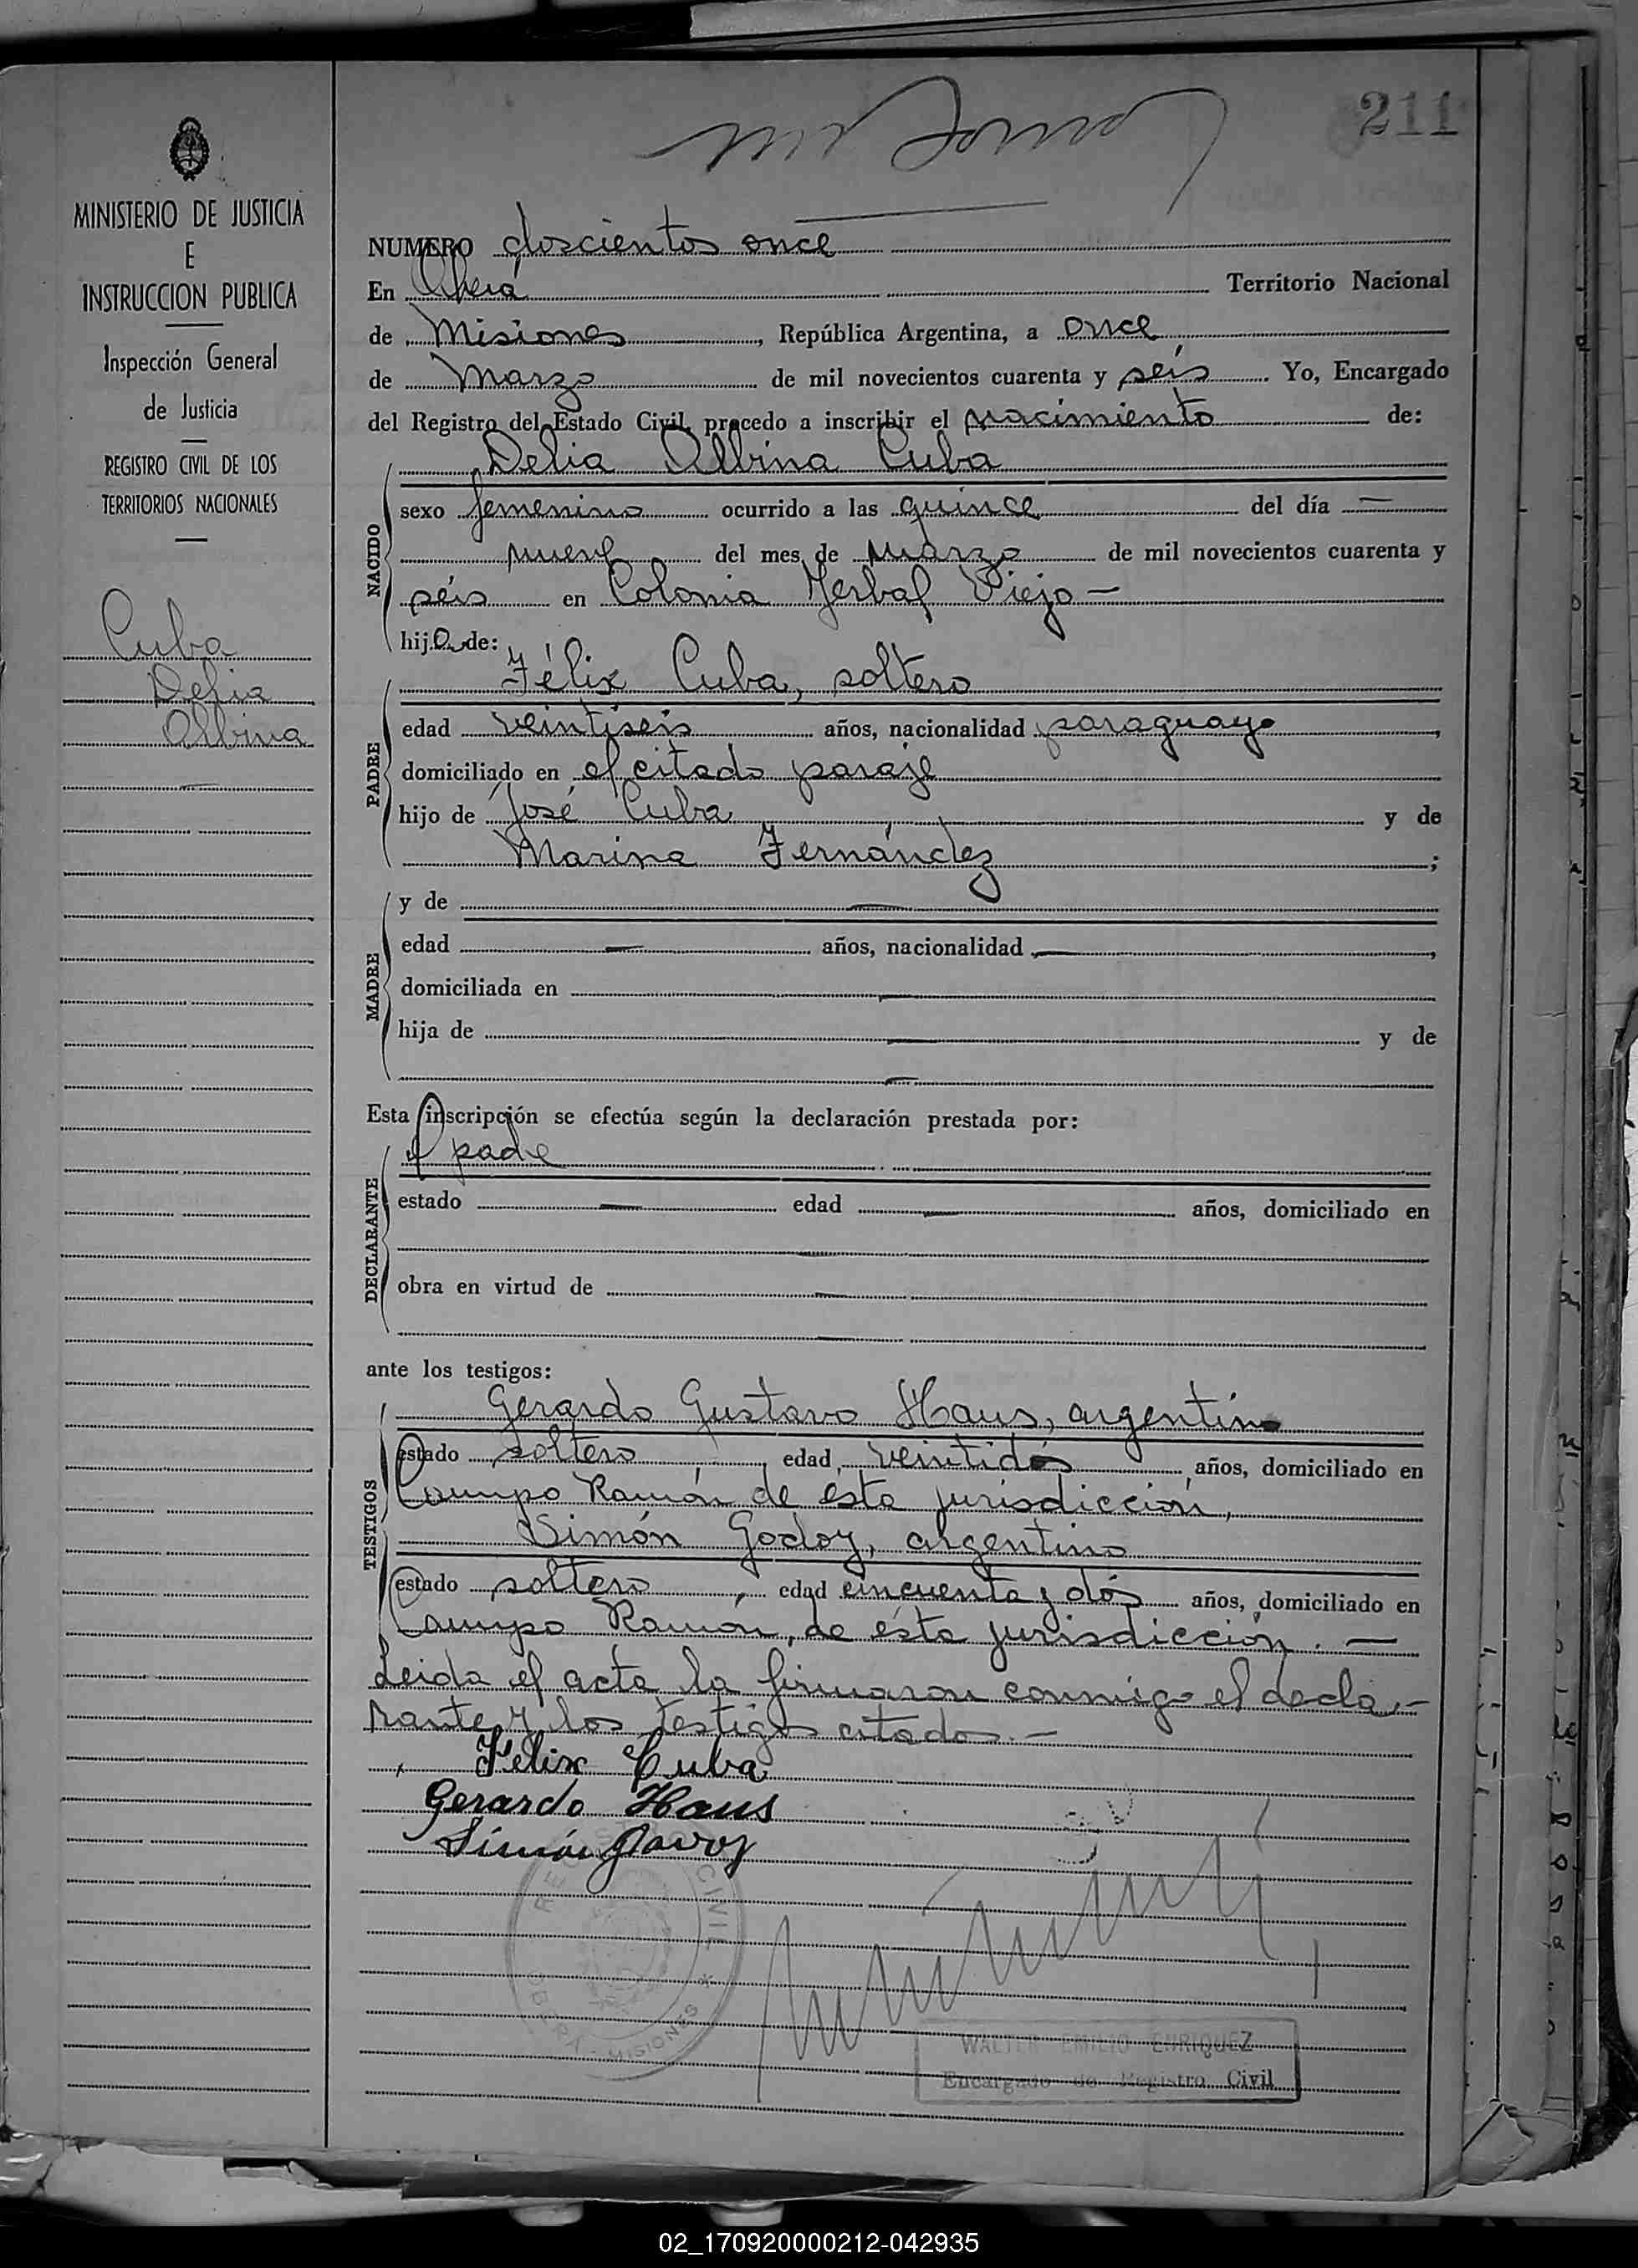 211
MINISTERIO DE JUSTICIA
E
INSTRUCCION PUBLICA
Inspección General
de Justicia
REGISTRO CIVIL DE LOS
TERRITORIOS NACIONALES
Cuba
Delia
Albina
NUMERO doscientos once
En Oberá Territorio Nacional
de Misiones, República Argentina, a once
de Marzo de mil novecientos cuarenta y seis. Yo, Encargado
del Registro del Estado Civil, procedo a inscribir el nacimiento de:
NACIDO
Delia Albina Cuba
sexo femenino ocurrido a las quince del día —
nueve del mes de marzo de mil novecientos cuarenta y
seis en Colonia Yerbal Viejo —
hija de:
PADRE
Félix Cuba, soltero
edad veintiseis años, nacionalidad paraguayo,
domiciliado en el citado paraje
hijo de José Cuba y de
Marina Fernández;
MADRE
y de —
edad — años, nacionalidad —,
domiciliada en —
hija de — y de
—
Esta inscripción se efectúa según la declaración prestada por:
DECLARANTE
el padre
estado — edad — años, domiciliado en
—
obra en virtud de —
—
ante los testigos:
TESTIGOS
Gerardo Gustavo Haus, argentino
estado soltero, edad veintidós años, domiciliado en
Campo Ramón de ésta jurisdicción,
Simón Godoy, argentino
estado soltero, edad cincuenta y dós años, domiciliado en
Campo Ramón, de ésta jurisdicción. —
Leida el acta la firmaron conmigo el decla-
rante y los testigos citados. —
Felix Cuba
Gerardo Haus
Simón
CIVIL
OBERA - MISIONES
WALTER EMILIO ENRIQUEZ
Encargado de Registro Civil
02_170920000212-042935